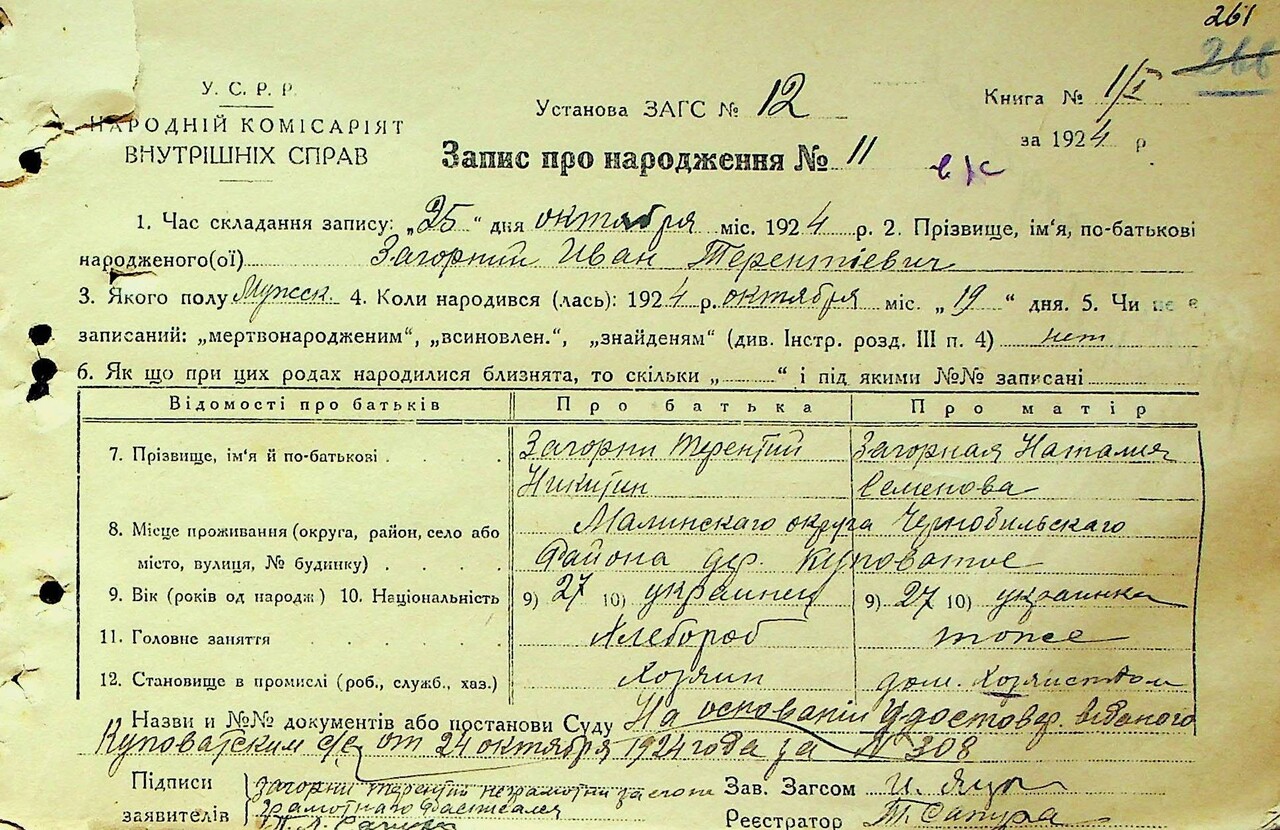 261
266
У. С. Р. Р.
НАРОДНІЙ КОМІСАРІЯТ
ВНУТРІШНІХ СПРАВ
Установа ЗАГС № 12
Книга № 1/I
за 1924 р
Запис про народження № 11
1. Час складання запису: „25" дня октября міс. 1924 р. 2. Прізвище, ім'я, по-батькові
народженого(ої) Загорний Иван Терентіевич
3. Якого полу Мужск. 4. Коли народився (лась): 1924 р. октября міс. „19" дня. 5. Чи не є
записаний: „мертвонародженим", „всиновлен.", „знайденям" (див. Інстр. розд. III п. 4) нет
6. Як що при цих родах народилися близнята, то скільки „ " і під якими №№ записані
Відомості про батьків Про батька Про матір
7. Прізвище, ім'я й по-батькові Загорни Терентий Загорная Наталия
Никитин Семенова
8. Місце проживання (округа, район, село або Малинскаго округа Чернобильскаго
місто, вулиця, № будинку) Района дер. Куповатое
9. Вік (років од народж) 10. Національність 9) 27 10) украинец 9) 27 10) украинка
11. Головне заняття Хлебороб тоже
12. Становище в промислі (роб., служб., хаз.) Хозяин дом. Хозяйством
Назви и №№ документів або постанови Суду На основаніи Удостовер. виданого
Куповатским с/с от 24 октября 1924 года за № 308
Підписи Загорни Терентий неграмотни за него Зав. Загсом И.
заявителів грамотнаго Расписался Реєстратор Т. Сапура